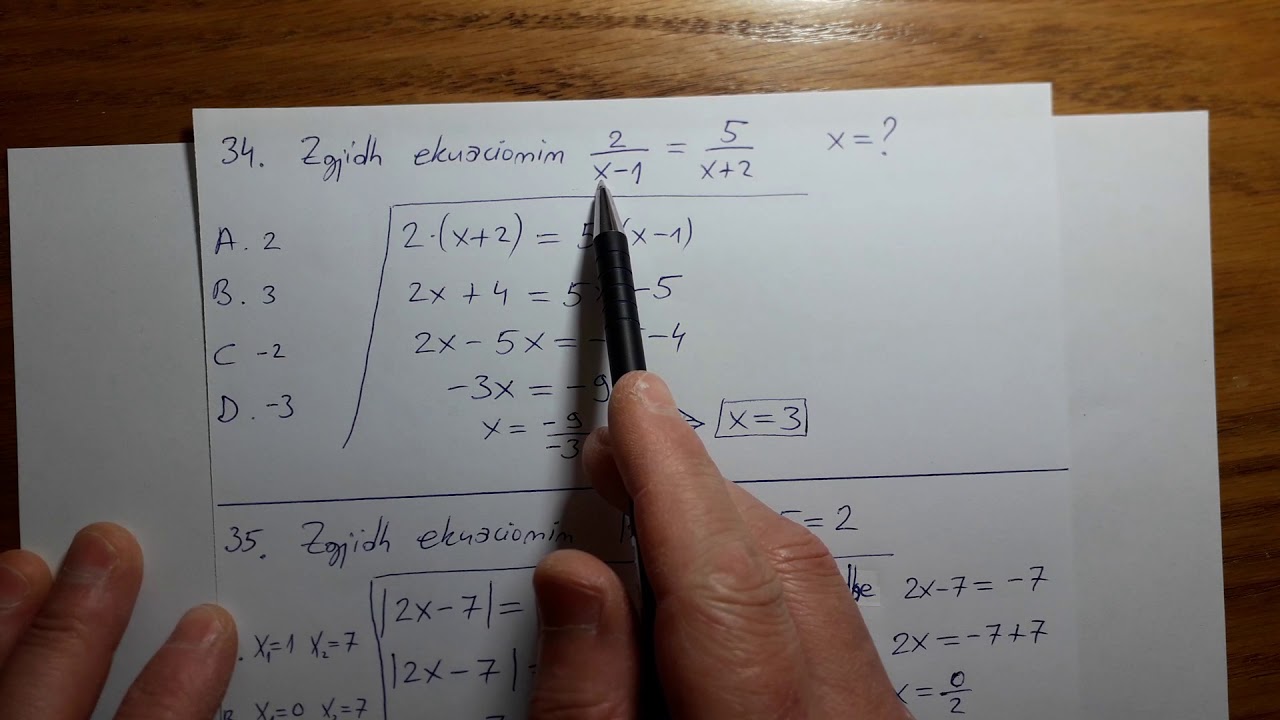 34. Zgjidh ekuacionim 2/(x-1) = 5/(x+2) x=?
A. 2
B. 3
C -2
D. -3
2·(x+2) = 5 (x-1)
2x + 4 = 5 -5
2x - 5x = - -4
-3x = -9
x = -9/-3
x=3
35. Zgjidh ekuacionim = 2
|2x-7| =
|2x-7| =
2x-7 = -7
2x = -7+7
x = 0/2
. x₁=1 x₂=7
x₁=0 x₂=7